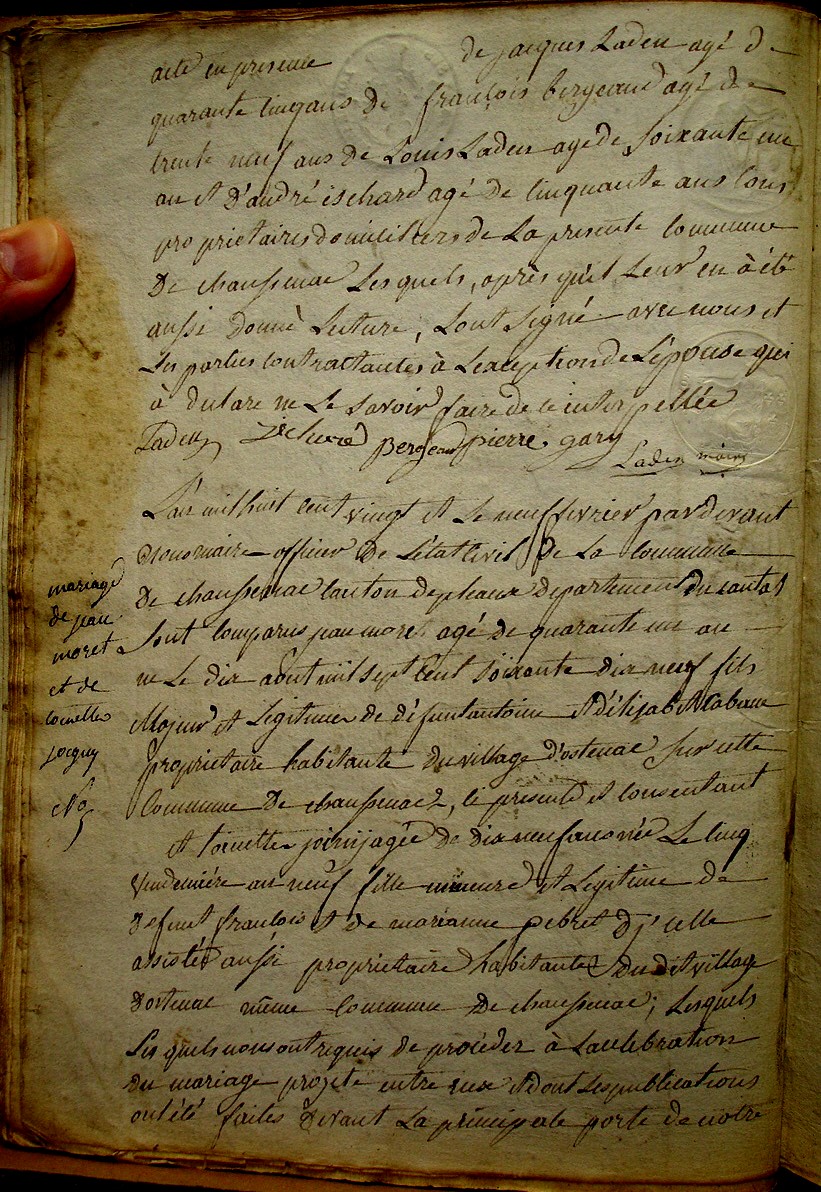 acte en presence de jacques Laden agé de
quarante cinq ans de françois bergeaud agé de
trente neuf ans de Louis Laden agé de Soixante un
an et d'andré ischard agé de cinquante ans tous
proprietaires domiciliers de La presente commune
De chaussenac Lesquels, après qu'il Leur en à été
aussi donné Lecture, Sont Signé avec nous et
Les parties contractantes à L'exception de L'épouse qui
à déclare ne Le savoir faire de ce interpellée
Laden bergeaud pierre gary
Laden maire
L'an mil huit cent vingt et Le neuf fevrier par devant
nous maire officier de L'état civil de La commune
De chaussenac canton de pleaux departement du cantal
Sont comparus jean moret agé de quarante un an
né Le dix aout mil sept cent soixante dix neuf fils
Majeur et Legitime de défunt antoine et d'élisabet
proprietaire habitante du village d'ostenac Sur cette
commune De chaussenac, ci presente et consentant
et toinette agée de dix neuf ans née Le cinq
vendemiére an neuf fille mineure et Legitime de
defunt francois et de marianne pebret d'i celle
assistée aussi proprietaire habitante du dit village
d'ostenac même commune De chaussenac; Lesquels
Les quels nous ont requis de procéder à La celebration
du mariage projeté entre eux et dont Les publications
ont été faites devant La principale porte de notre
mariage
de jean
moret
et de
toinette
No 5